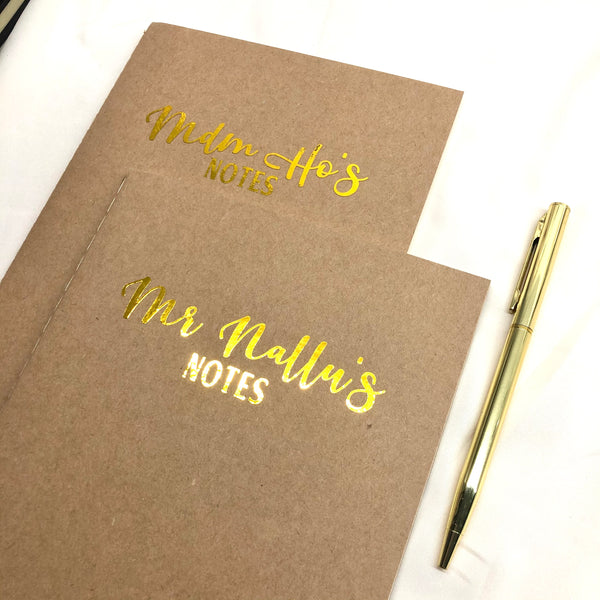 Mdm Ho's
NOTES
Mr Nallu's
NOTES